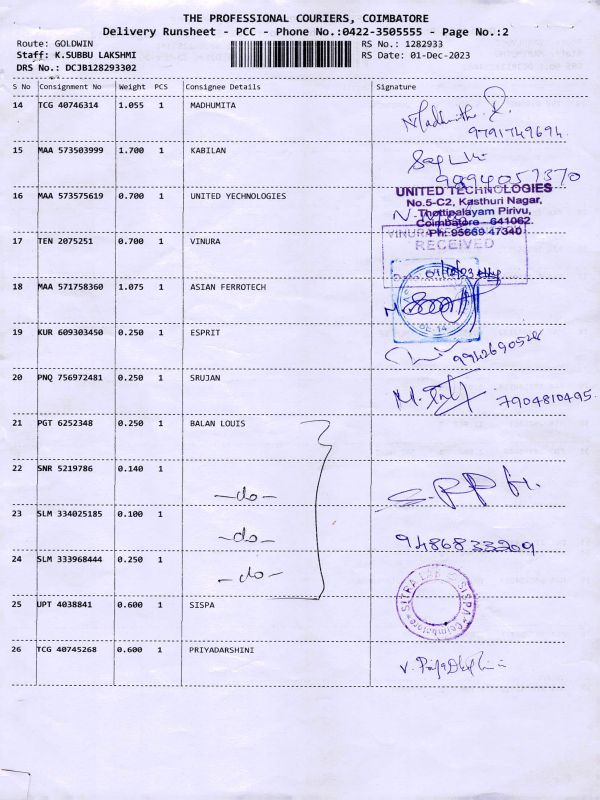 THE PROFESSIONAL COURIERS, COIMBATORE
Delivery Runsheet - PCC - Phone No.:0422-3505555 - Page No.:2
Route: GOLDWIN RS No.: 1282933
Staff: K.SUBBU LAKSHMI RS Date: 01-Dec-2023
DRS No.: DCJB128293302
S No Consignment No Weight PCS Consignee Details Signature
14 TCG 40746314 1.055 1 MADHUMITA
9791749694
15 MAA 573503999 1.700 1 KABILAN
9894057370
16 MAA 573575619 0.700 1 UNITED YECHNOLOGIES
UNITED TECHNOLOGIES
No.5-C2, Kasthuri Nagar,
Thottipalayam Pirivu,
Coimbatore - 641062.
Ph: 95669 47340
17 TEN 2075251 0.700 1 VINURA
RECEIVED
18 MAA 571758360 1.075 1 ASIAN FERROTECH
19 KUR 609303450 0.250 1 ESPRIT
9942690528
20 PNQ 756972481 0.250 1 SRUJAN
7904810495
21 PGT 6252348 0.250 1 BALAN LOUIS
22 SNR 5219786 0.140 1
-do-
23 SLM 334025185 0.100 1
-do-
9486833209
24 SLM 333968444 0.250 1
-do-
25 UPT 4038841 0.600 1 SISPA
SITRA LAB SISPA Coimbatore
26 TCG 40745268 0.600 1 PRIYADARSHINI